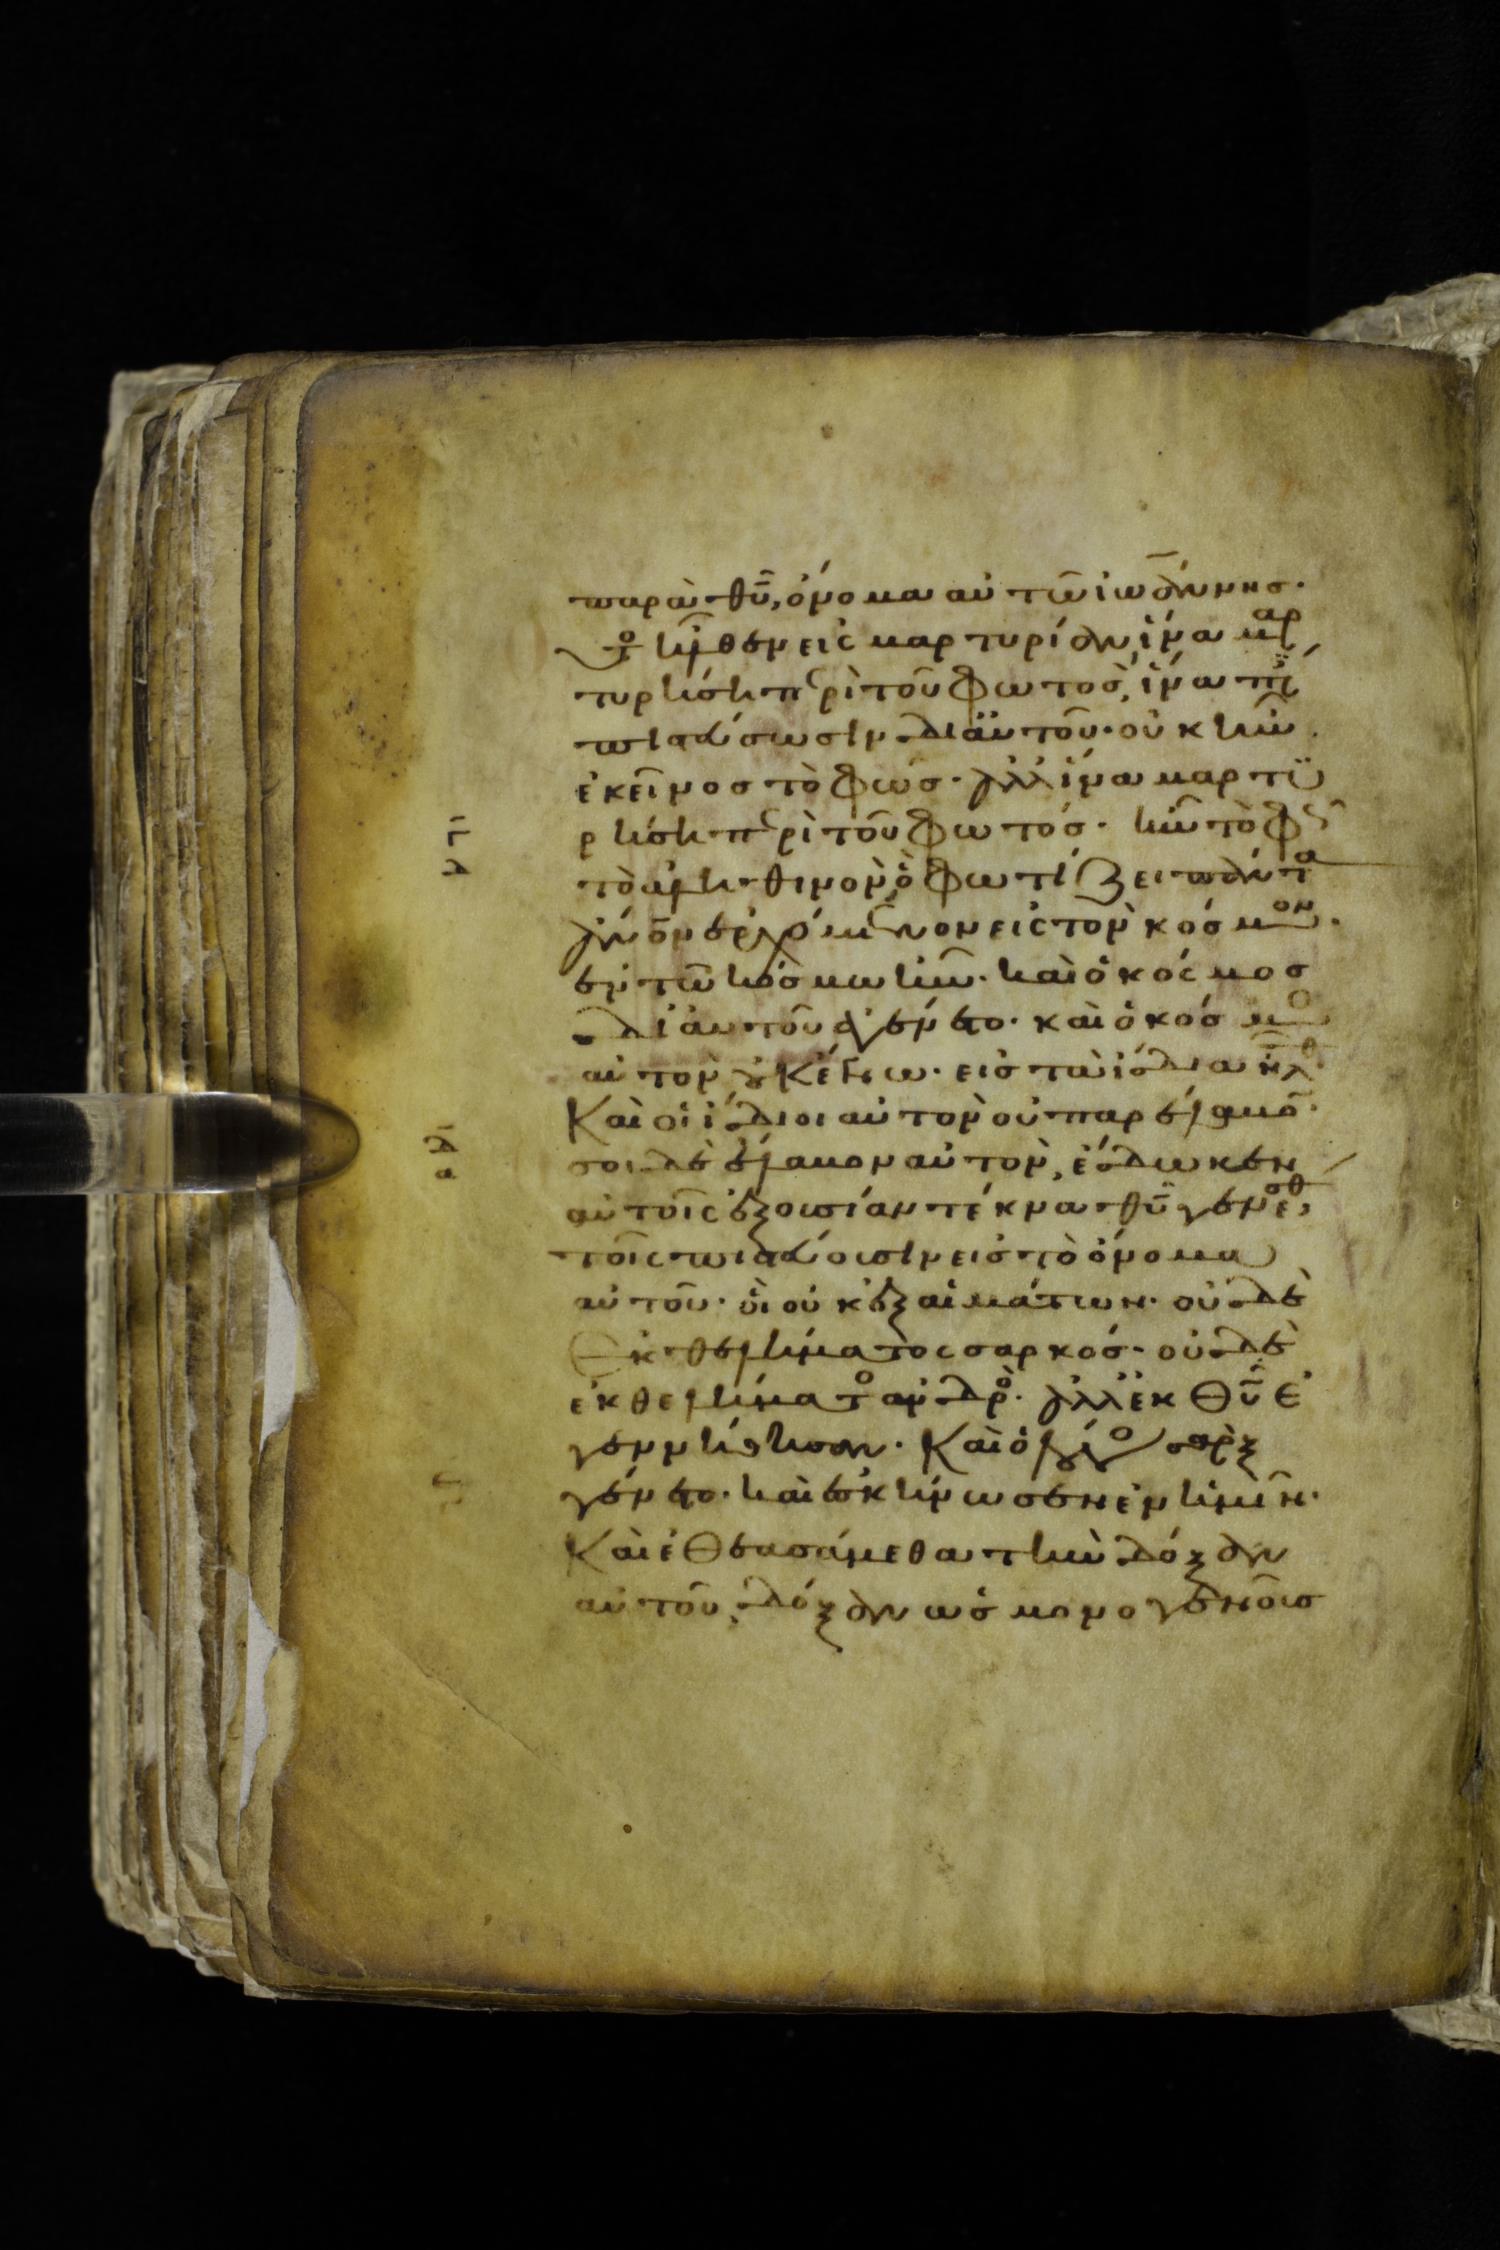 παρὰ θῦ, ὄνομα αὐτῶ ἰωάννης·
οὗτο ἦλθεν εἰς μαρτυρίαν, ἵνα μαρ
τυρήση περὶ τοῦ φωτός, ἵνα πά
πιστεύσωσιν δι' αὐτοῦ· οὐκ ἦν
ἐκεῖνος τὸ φῶς· ἀλλ' ἵνα μαρτυ
ρήση περὶ τοῦ φωτός· ἦν τὸ φῶς
τὸ ἀληθινὸν, ὃ φωτίζει πάντα
ἄνον ἐρχόμενον εἰς τὸν κόσμον·
ἐν τῶ κόσμω ἦν· καὶ ὁ κόσμος
δι' αὐτοῦ ἐγένετο· καὶ ὁ κόσμο
αὐτὸν οὐκ ἔγνω· εἰς τὰ ἴδια ἦλθ
ιδ
καὶ οἱ ἴδιοι αὐτὸν οὐ παρέλαβο·
ὅσοι δὲ ἔλαβον αὐτὸν, ἔδωκεν
αὐτοῖς ἐξουσίαν τέκνα θῦ γενέσθ,
τοῖς πιστεύουσιν εἰς τὸ ὄνομα
αὐτοῦ· οἳ οὐκ ἐξ αἱμάτων· οὐδὲ
ἐκ θελήματος σαρκός· οὐδὲ
ἐκ θελήματο ἀνδρὸ· ἀλλ' ἐκ θῦ ἐ
γεννήθησαν· καὶ ὁ λόγο σὰρξ
γένετο· καὶ ἐσκήνωσεν ἐν ἡμῖν·
καὶ ἐθεασάμεθα τὴν δόξαν
αὐτοῦ, δόξαν ὡς μονογενοῦς